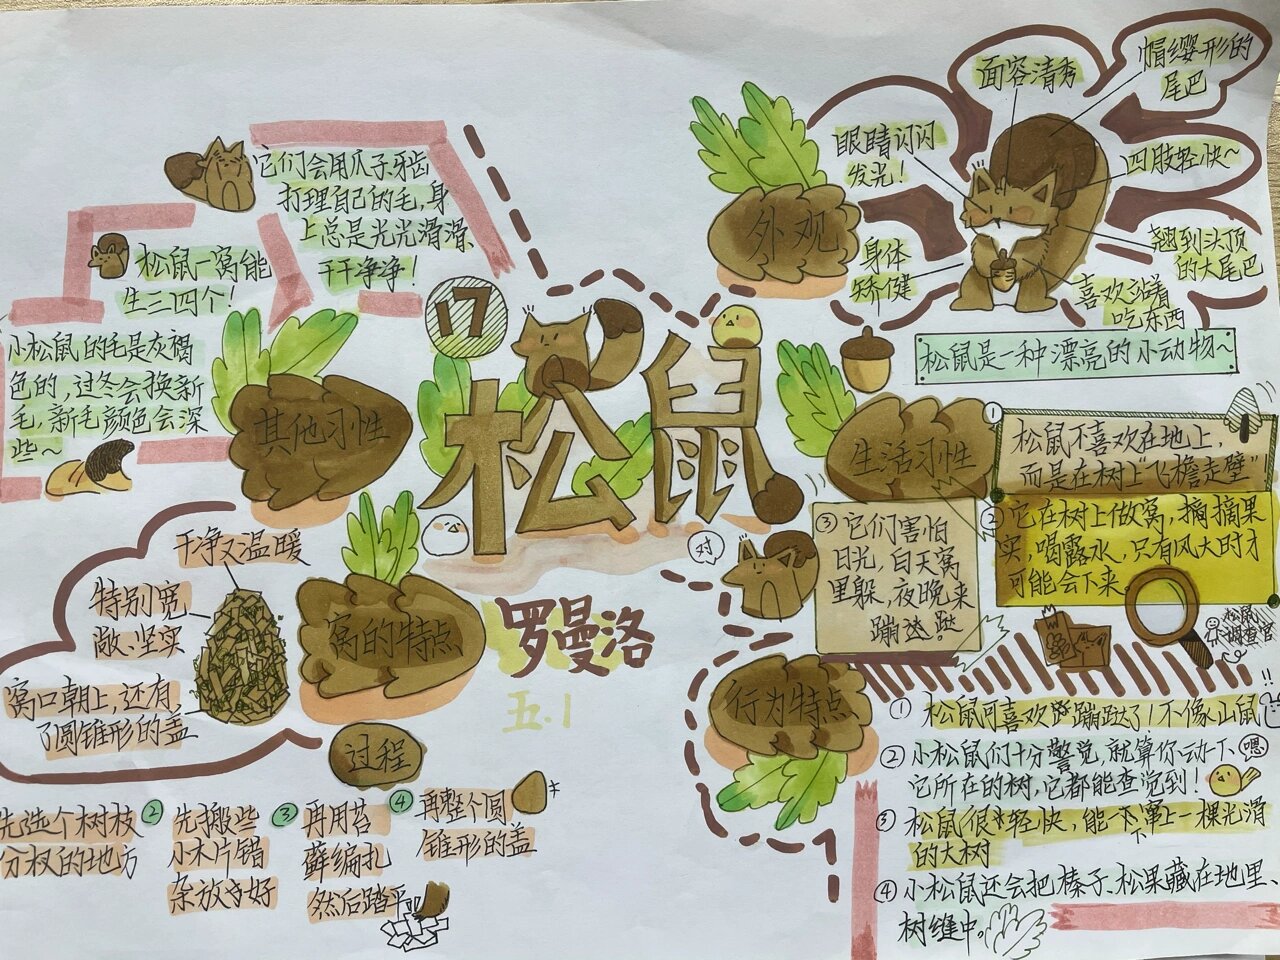 17
松鼠
罗曼洛
五.1
外观
面容清秀
帽缨形的
尾巴
眼睛闪闪
发光!
四肢轻快~
身体
矫健
翘到头顶
的大尾巴
喜欢站着
吃东西
松鼠是一种漂亮的小动物~
生活习性
①
松鼠不喜欢在地上,
而是在树上“飞檐走壁”
②
它在树上做窝,摘摘果
实,喝露水,只有风大时才
可能会下来。
③它们害怕
日光,白天窝
里躲,夜晚来
蹦达达。
对
松鼠
调查官
行为特点
① 松鼠可喜欢蹦跶了!不像山鼠
② 小松鼠们十分警觉,就算你动一下
它所在的树,它都能查觉到!
嗯
③ 松鼠很轻快,能一下窜上一棵光滑
的大树
④ 小松鼠还会把榛子、松果藏在地里、
树缝中。
其他习性
它们会用爪子、牙齿
打理自己的毛,身
上总是光光滑滑、
干干净净!
松鼠一窝能
生三四个!
小松鼠的毛是灰褐
色的,过冬会换新
毛,新毛颜色会深
些~
窝的特点
干净又温暖
特别宽
敞、坚实
窝口朝上,还有,
了圆锥形的盖
过程
先选个树枝
分杈的地方
②
先搬些
小木片错
杂放好
③
再用苔
藓编扎
然后踏平
④
再整个圆
锥形的盖